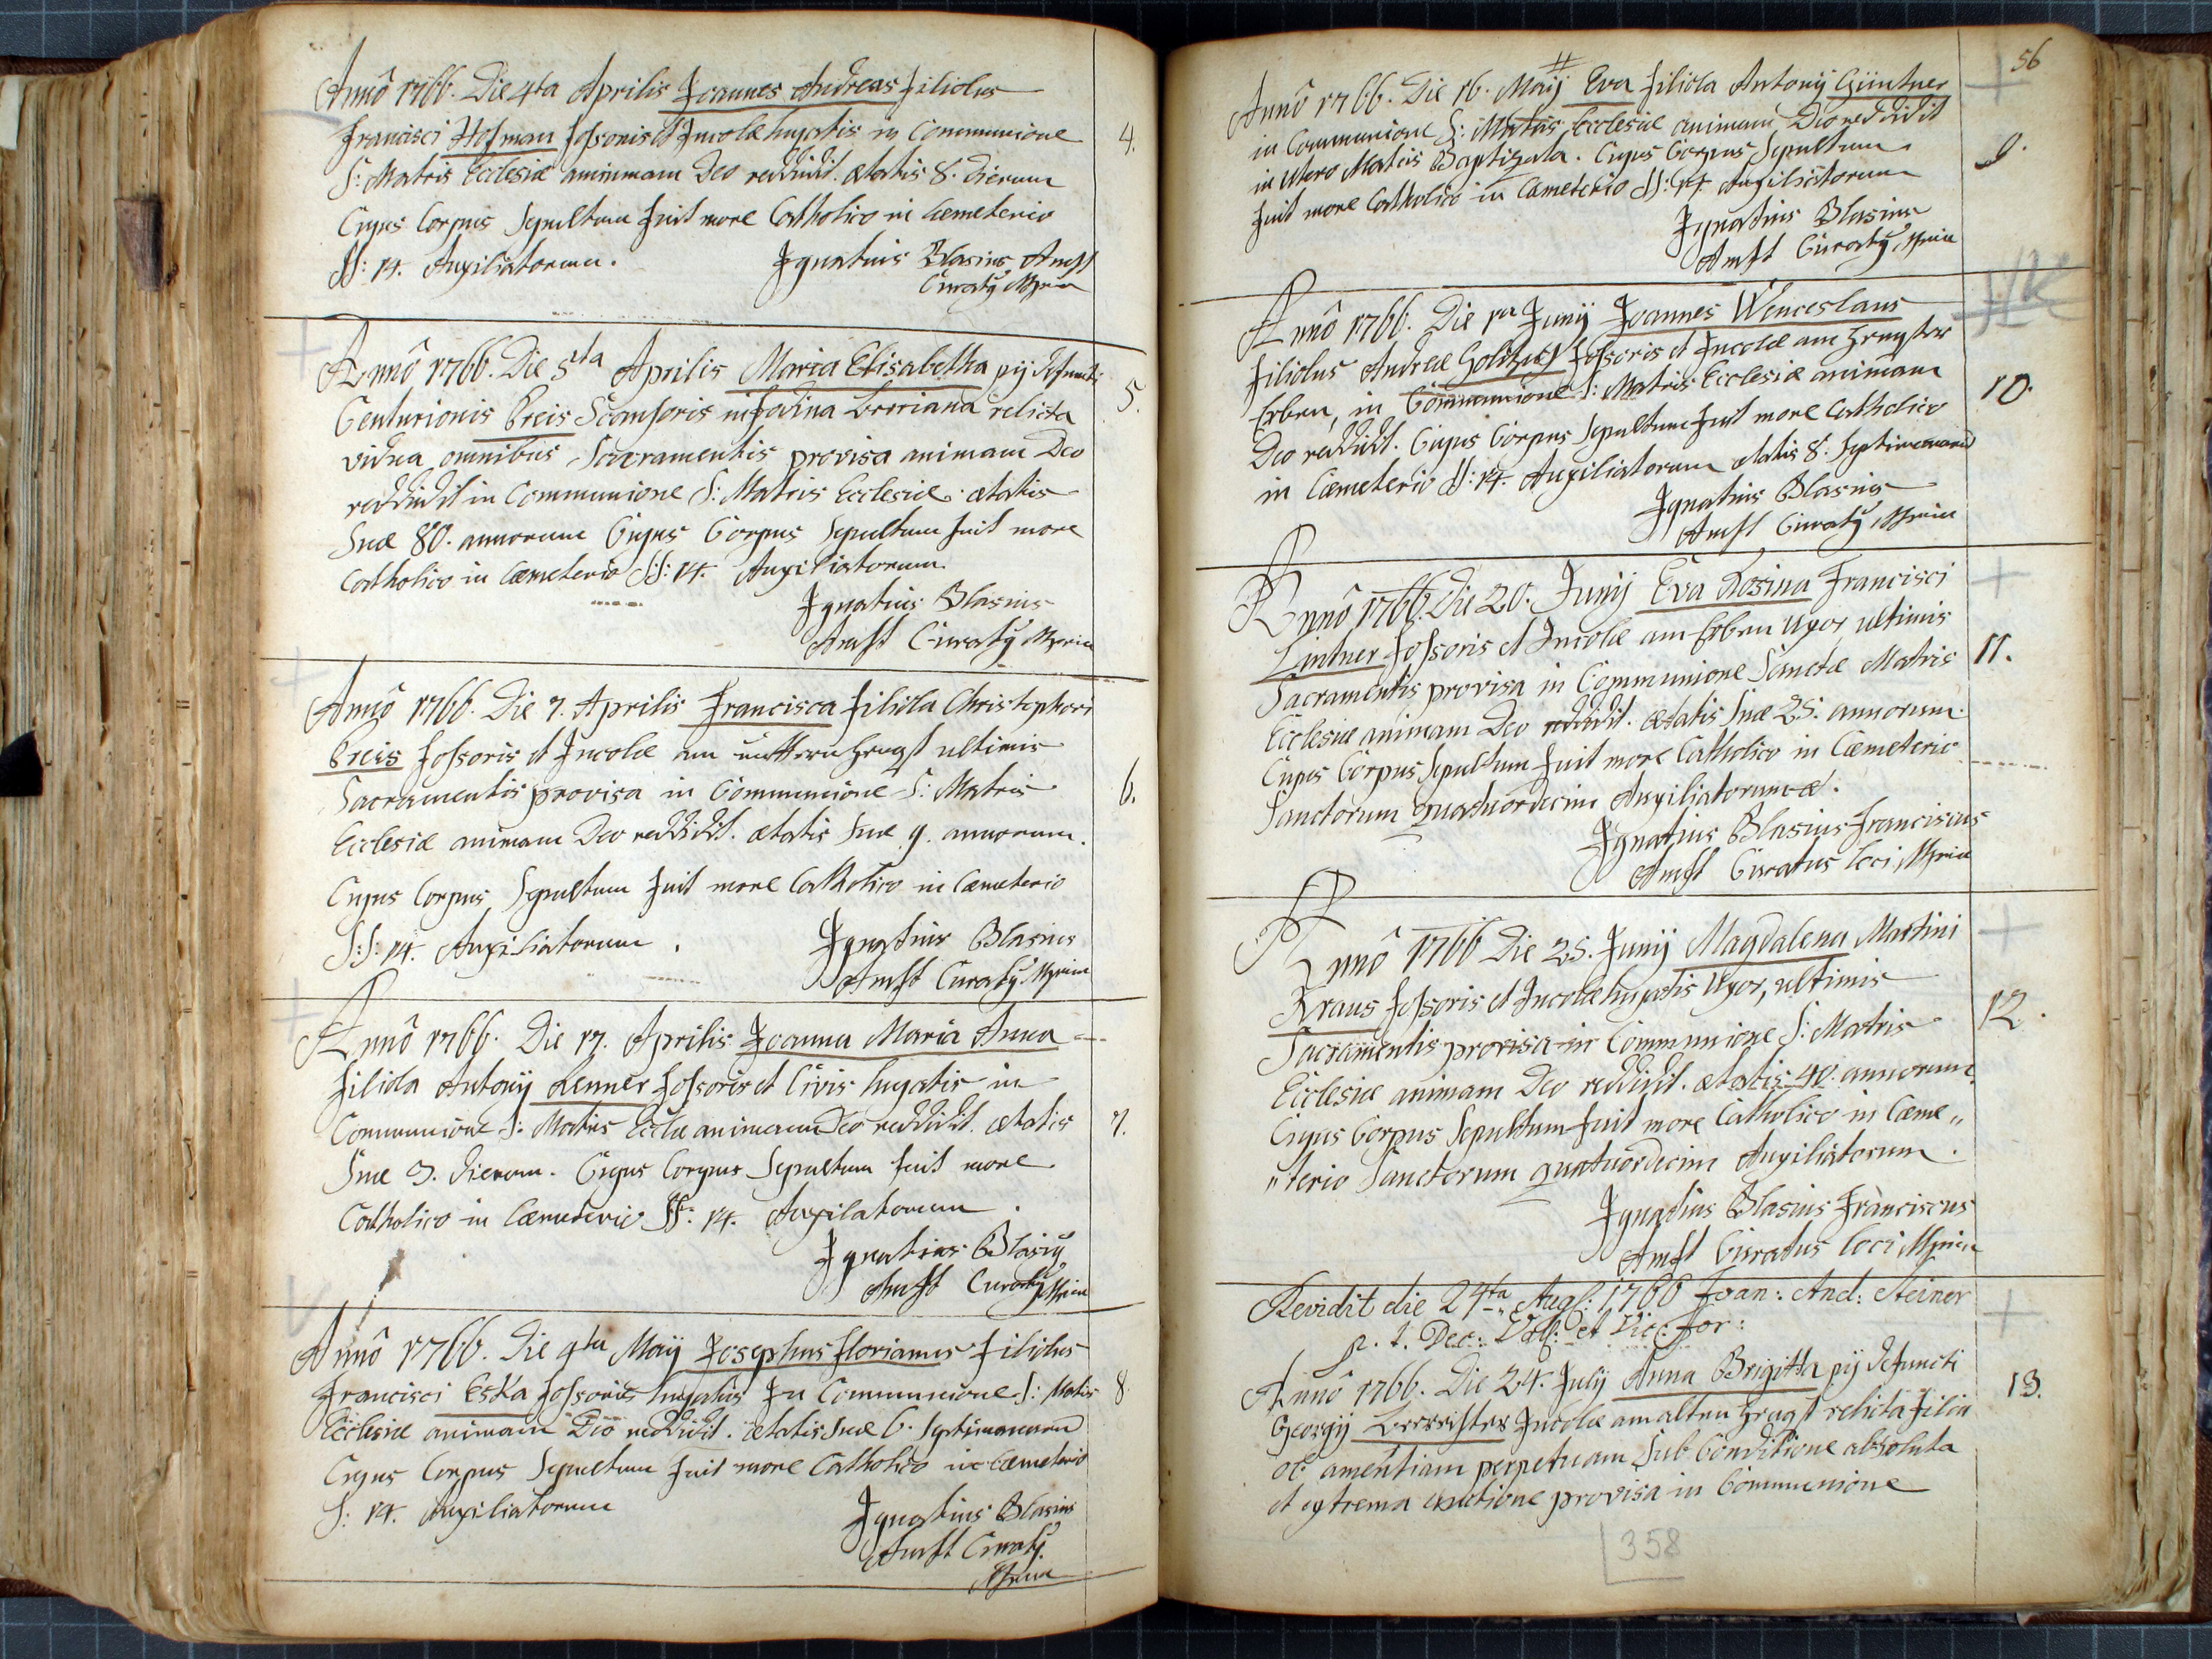 Anno 1766. Die 4ta Aprilis Joannes Andreas filiolus
Francisci Hofman fossoris et Incolæ hujatis in Communione
S: Matris Ecclesiæ animmam Deo reddidit. ætatis 8. dierum
Cujus Corpus Sepultum fuit more Catholico in Cæmeterio
SS: 14. Auxiliatorum.
Ignatius Blasius Amst
Curatq Mpria
4.
Anno 1766. Die 5ta Aprilis Maria Elisabetha pij defuncti
Centurionis Preis Scansoris in fodina relicta
vidua omnibus Sacramentis provisa animam Deo
reddidit in Communione S: Matris Ecclesiæ ætatis
Suæ 80. annorum Cujus Corpus Sepultum fuit more
Catholico in Cæmeterio S:S: 14. Auxiliatorum.
Ignatius Blasius
Amst Curatq Mpria
5.
Anno 1766. Die 7. Aprilis Francisca filiola Christophori
Preis fossoris et Incolæ am ultimis
Sacramentis provisa in Communione S: Matris
Ecclesiæ animam Deo reddidit. ætatis suæ 9. annorum.
Cujus Corpus Sepultum fuit more Catholico in Cæmeterio
S:S: 14. Auxiliatorum.
Ignatius Blasius
Amst Curatq Mpria
6.
Anno 1766. Die 17. Aprilis Joanna Maria Anna
filiola Antonij Lenner fossoris et Civis hujatis in
Communione S: Matris Eccliæ animam Deo reddidit. ætatis
Suæ 3. dierum. Cujus Corpus Sepultum fuit more
Catholico in Cæmeterio SS: 14. Auxilatorum.
Ignatius Blasiq
Amst Curatq Mpria
7.
Anno 1766. Die 9ta Maij Josephus Florianus filiolus
Francisci Eska fossoris hujatis In Communione S: Matis
Ecclesiæ animam Deo reddidit. ætatis suæ 6. Septimanarum
Cujus Corpus Sepultum fuit more Catholico in Cæmeterio
S: 14. Auxiliatorum
Ignatius Blasius
Amst Curatq.
Mpria
8.
56
Anno 1766. Die 16. Maij Eva filiola Antonij Güntner
in Communione S: Matris Ecclesiæ animam Deo reddidit
in Utero Matris Baptizata. Cujus Corpus Sepultum
fuit more Catholico in Cæmeterio SS: 14 Auxiliatorum
Ignatius Blasius
Amst Curatq Mpria
9.
Anno 1766. Die 1ma Junij Joannes Wenceslaus
filiolus Andreæ fossoris et Incolæ am
Erben, in Communione S: Matris Ecclesiæ animam
Deo reddidit. Cujus Corpus Sepultum fuit more Catholico
in Cæmeterio SS: 14. Auxiliatorum ætatis 8. Septimanarum
Ignatius Blasius
Amst Curatq Mpria
10.
Anno 1766. Die 20. Junij Eva Rosina Francisci
Lintner fossoris et Incolæ am Erben Uxor, ultimis
Sacramentis provisa in Communione Sanctæ Matris
Ecclesiæ animam Deo reddidit. ætatis suæ 25. annorum.
Cujus Corpus Sepultum fuit more Catholico in Cæmeterio
Sanctorum quatuordecim Auxiliatorum.
Ignatius Blasius Franciscus
Amst Curatus loci Mpria
11.
Anno 1766 Die 25. Junij Magdalena Martini
Kraus fossoris et Incolæ hujatis Uxor, ultimis
Sacramentis provisa in Communione S: Matris
Ecclesiæ animam Deo reddidit. ætatis 40. annorum.
Cujus Corpus Sepultum fuit more Catholico in Cæme„
„terio Sanctorum quatuordecim Auxiliatorum.
Ignatius Blasius Franciscus
Amst Curatus loci Mpria
12.
Revidit die 24ta Aug: 1766 Joan: And: Steiner
p. t. Dec: et Vic: For:
Anno 1766. Die 24. Julij Anna Brigitta pij defuncti
Georgij Incolæ am alten relicta filia
ob amentiam perpetuam Sub Conditione absoluta
et extrema unctione provisa in Communione
13.
358